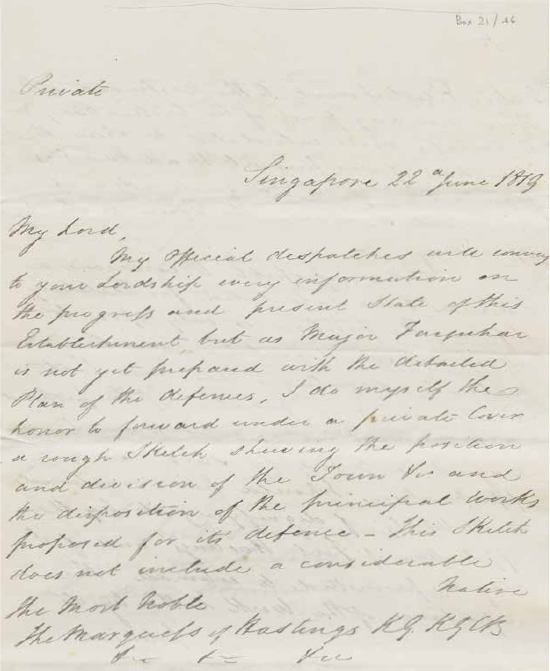 Box 21/16
Private
Singapore 22d June 1819
My Lord,
My Official despatches will convey
to your Lordship every information on
the progress and present State of this
Establishment but as Major Farquhar
is not yet prepared with the detailed
Plan of the defences, I do myself the
honor to forward under a private Cover
a rough Sketch shewing the position
and division of the Town &c and
the disposition of the principal works
proposed for its defence – This Sketch
does not include a considerable
Native
The Most Noble
The Marquess of Hastings KG. KGCB
&c &c &cc